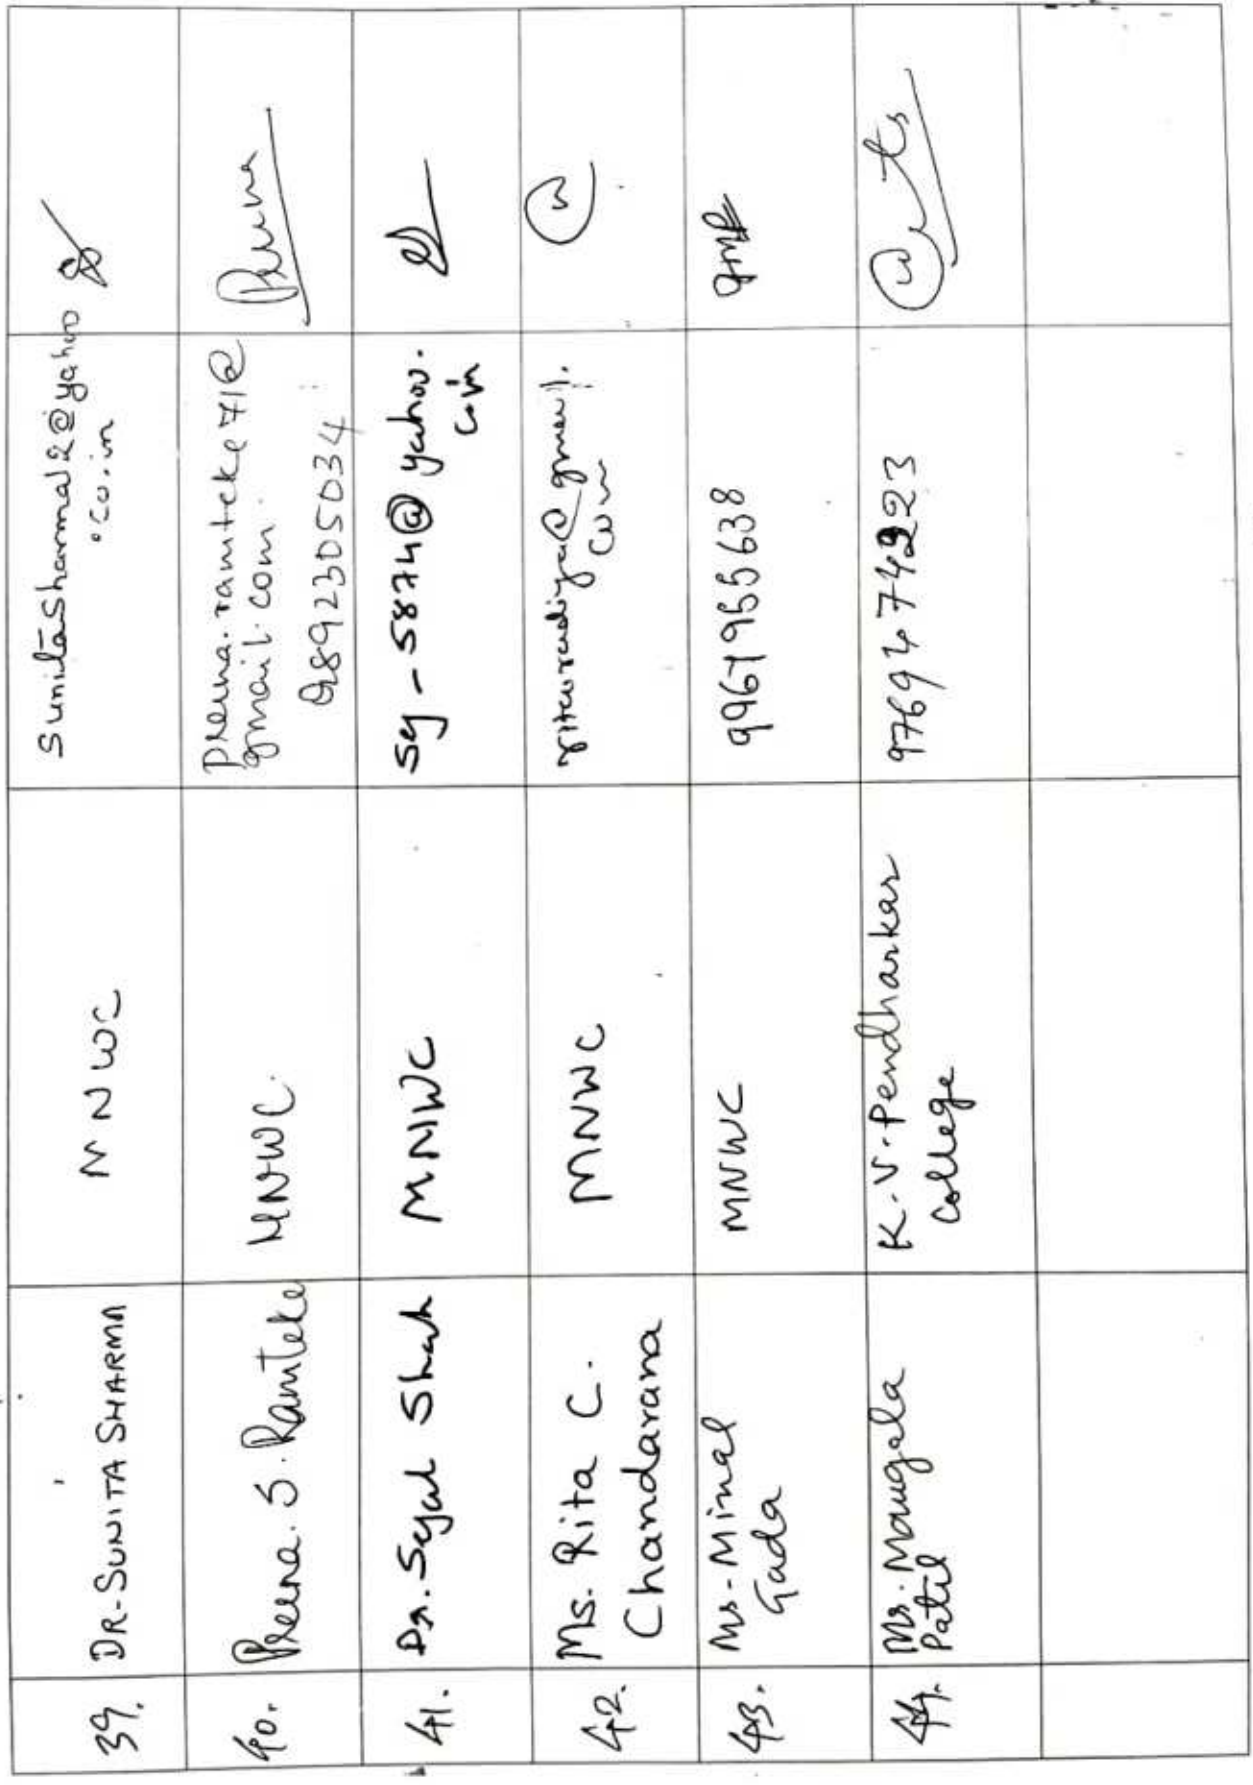 39.
DR. SUNITA SHARMA
MNWC
sunitasharma12@yahoo
.co.in
40.
Prerna. S. Ramteke
MNWC.
prerna.ramteke71@
gmail.com.
9892305034
Prerna
41.
Dr. Sejal Shah
MNWC
Sej-5874@yahoo.
com
42.
Ms. Rita C.
Chandarana
MNWC
com
43.
Ms. Minal
Gada
MNWC
9967955638
44.
Ms. Mangala
Patil
K. V. Pendharkar
College